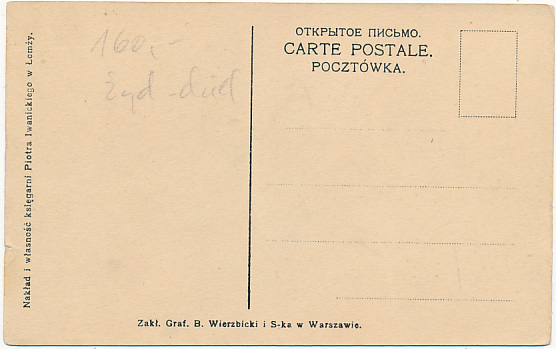 160,-
Żyd-died
ОТКРЫТОЕ ПИСЬМО.
CARTE POSTALE.
POCZTÓWKA.
Nakład i własność księgarni Piotra Iwanickiego w Łomży.
Zakł. Graf. B. Wierzbicki i S-ka w Warszawie.